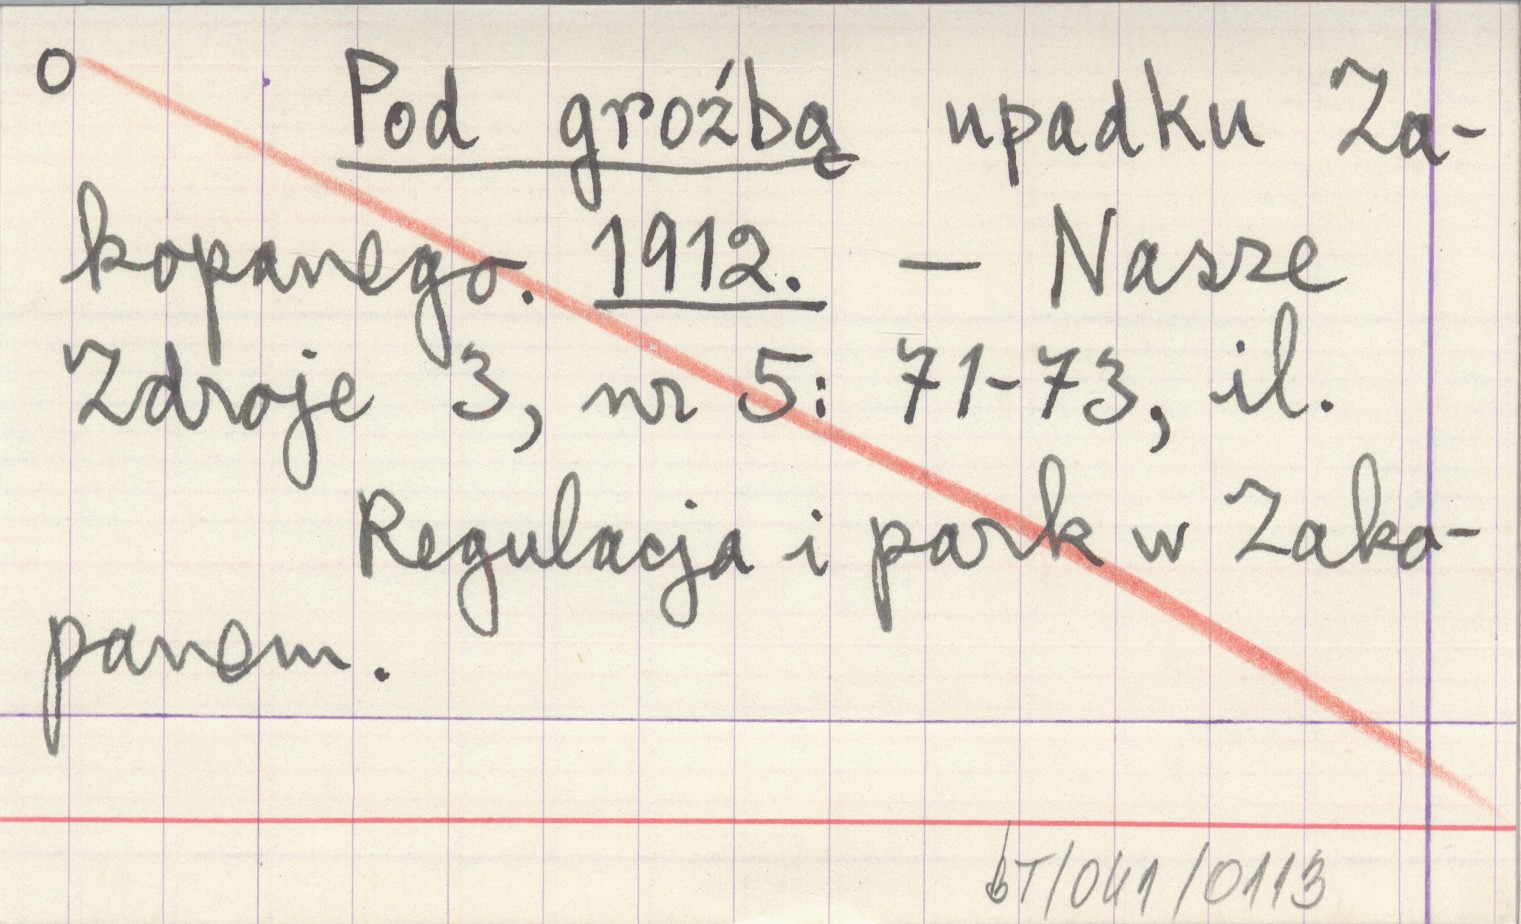 O Pod groźbą upadku Za-
kopanego. 1912. — Nasze
Zdroje 3, nr 5: 71-73, il.
Regulacja i park w Zako-
panem.
bT/041/0113